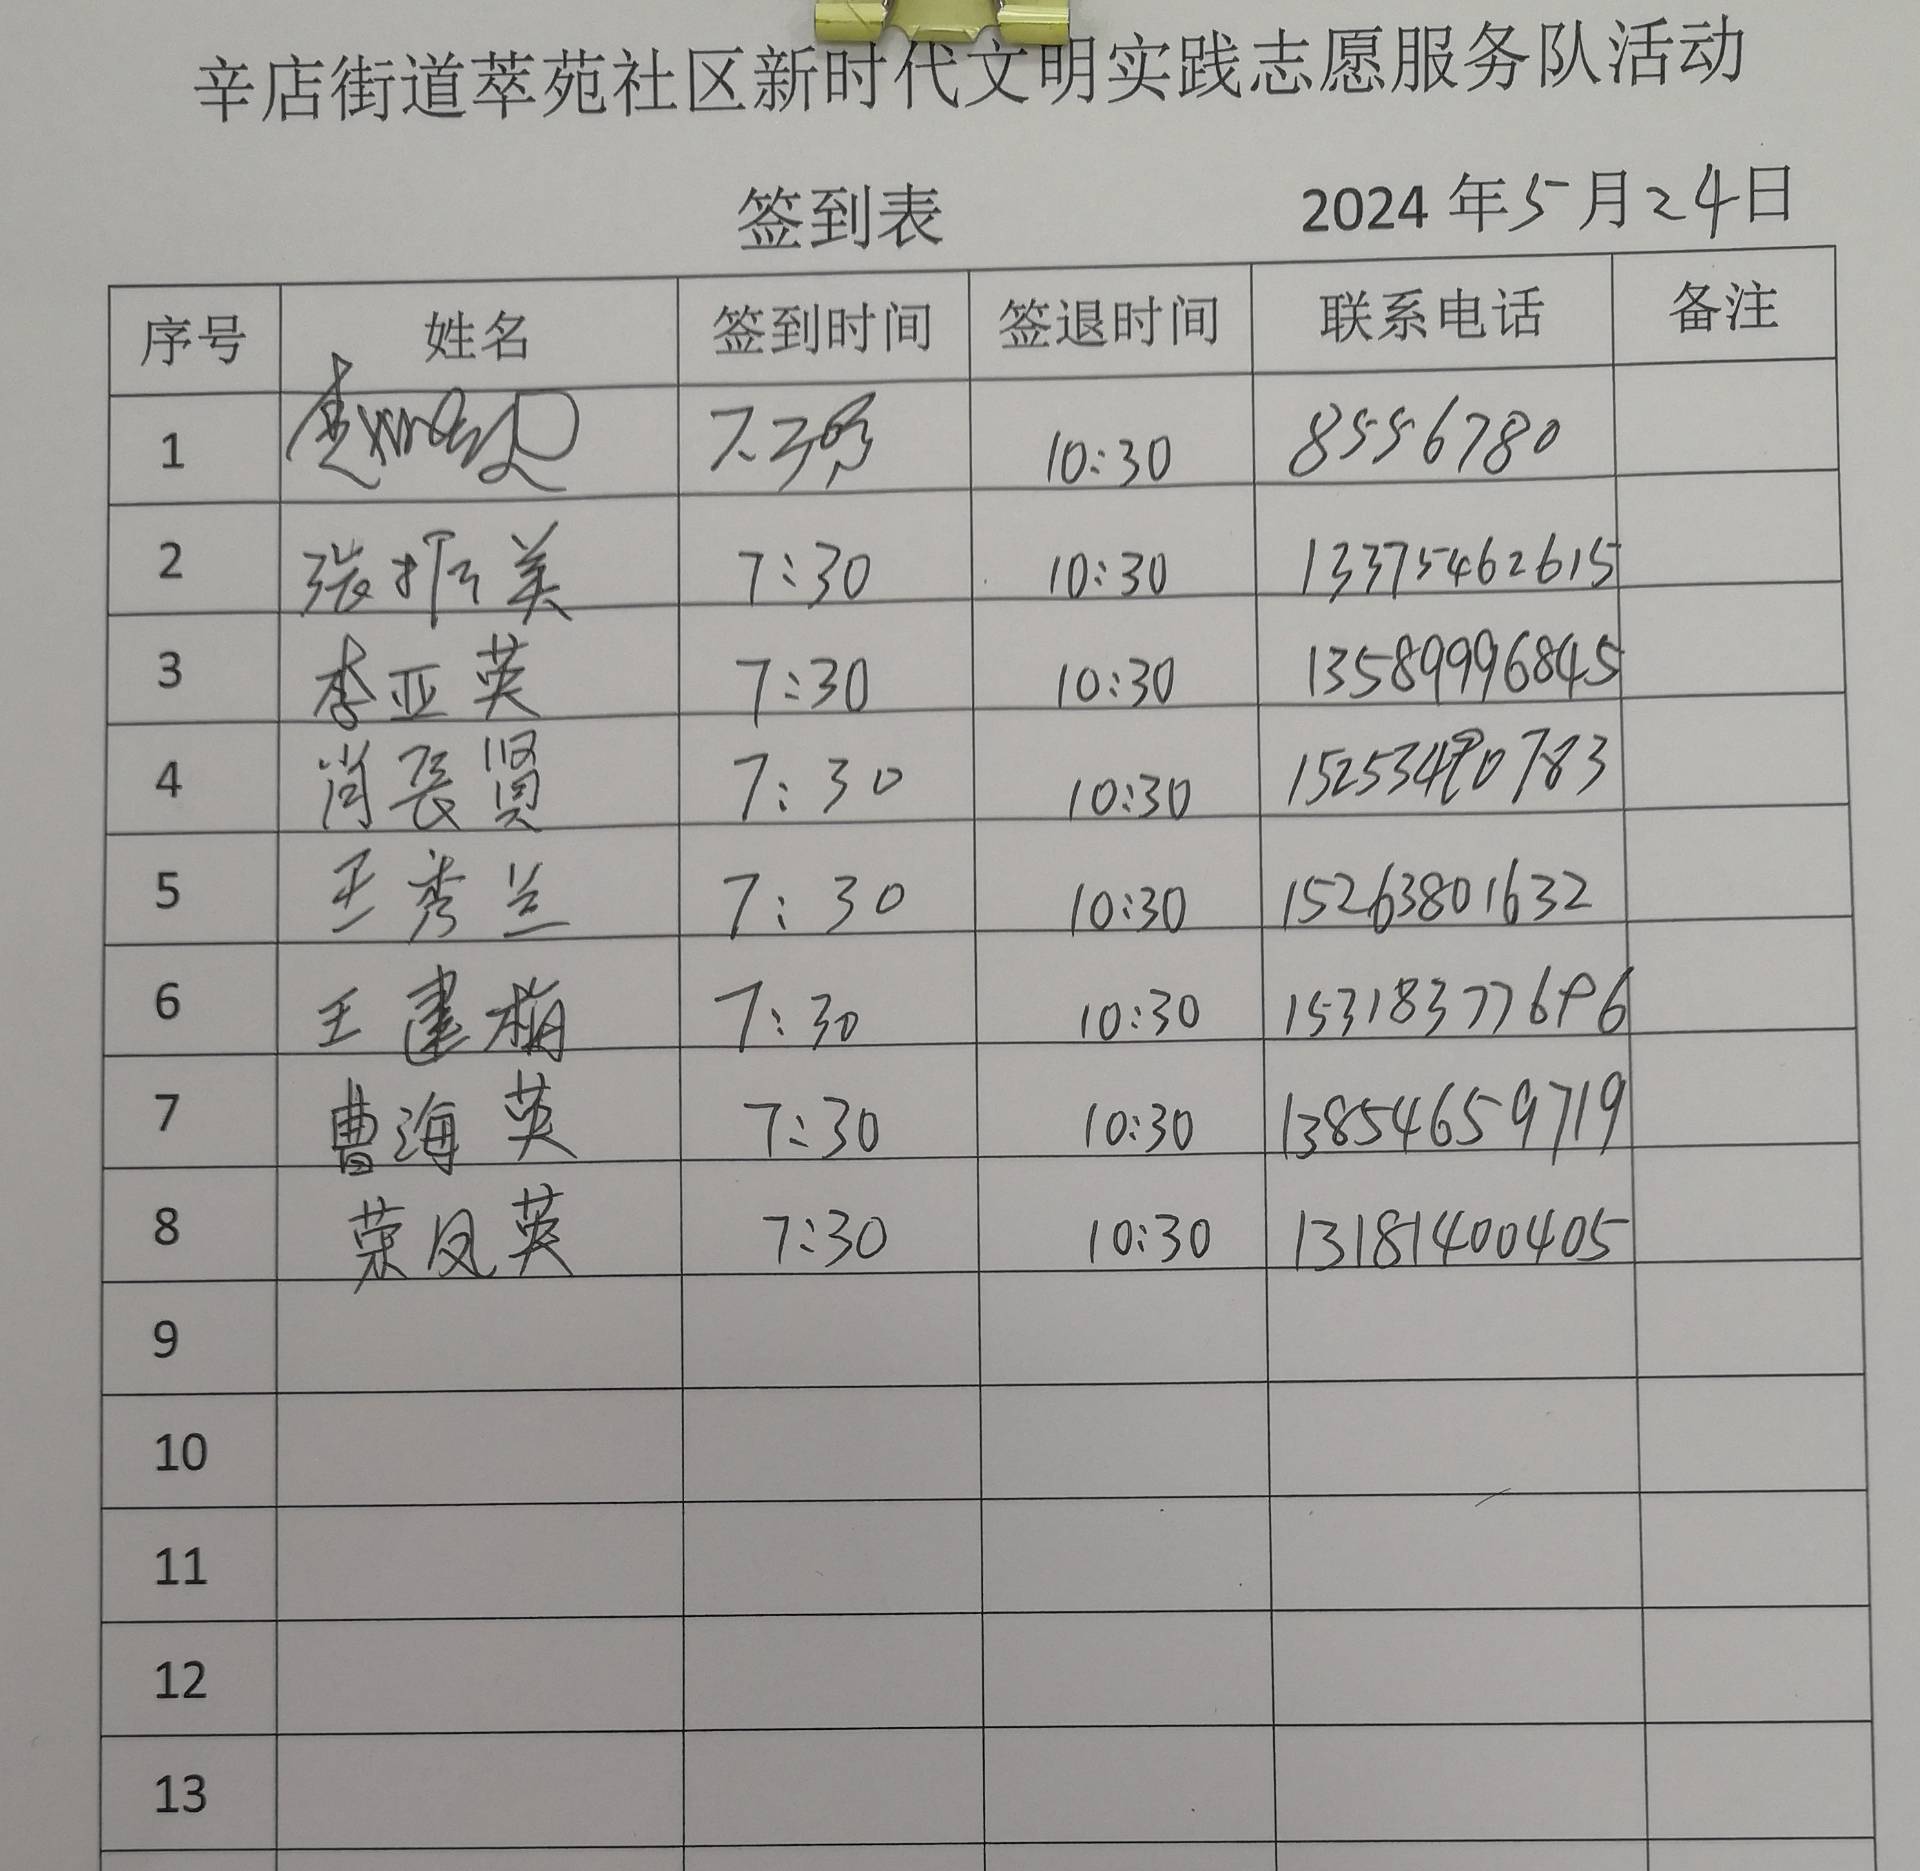 辛店街道萃苑社区新时代文明实践志愿服务队活动
签到表 2024年5月24日
序号 姓名 签到时间 签退时间 联系电话 备注
1 10:30 8556780
2 张振美 7:30 10:30 13375462615
3 李亚英 7:30 10:30 13589996845
4 肖長贤 7:30 10:30
5 王秀兰 7:30 10:30 15263801632
6 王建梅 7:30 10:30 15318377696
7 曹海英 7:30 10:30 13854659719
8 荣凤英 7:30 10:30 13181400405
9
10
11
12
13